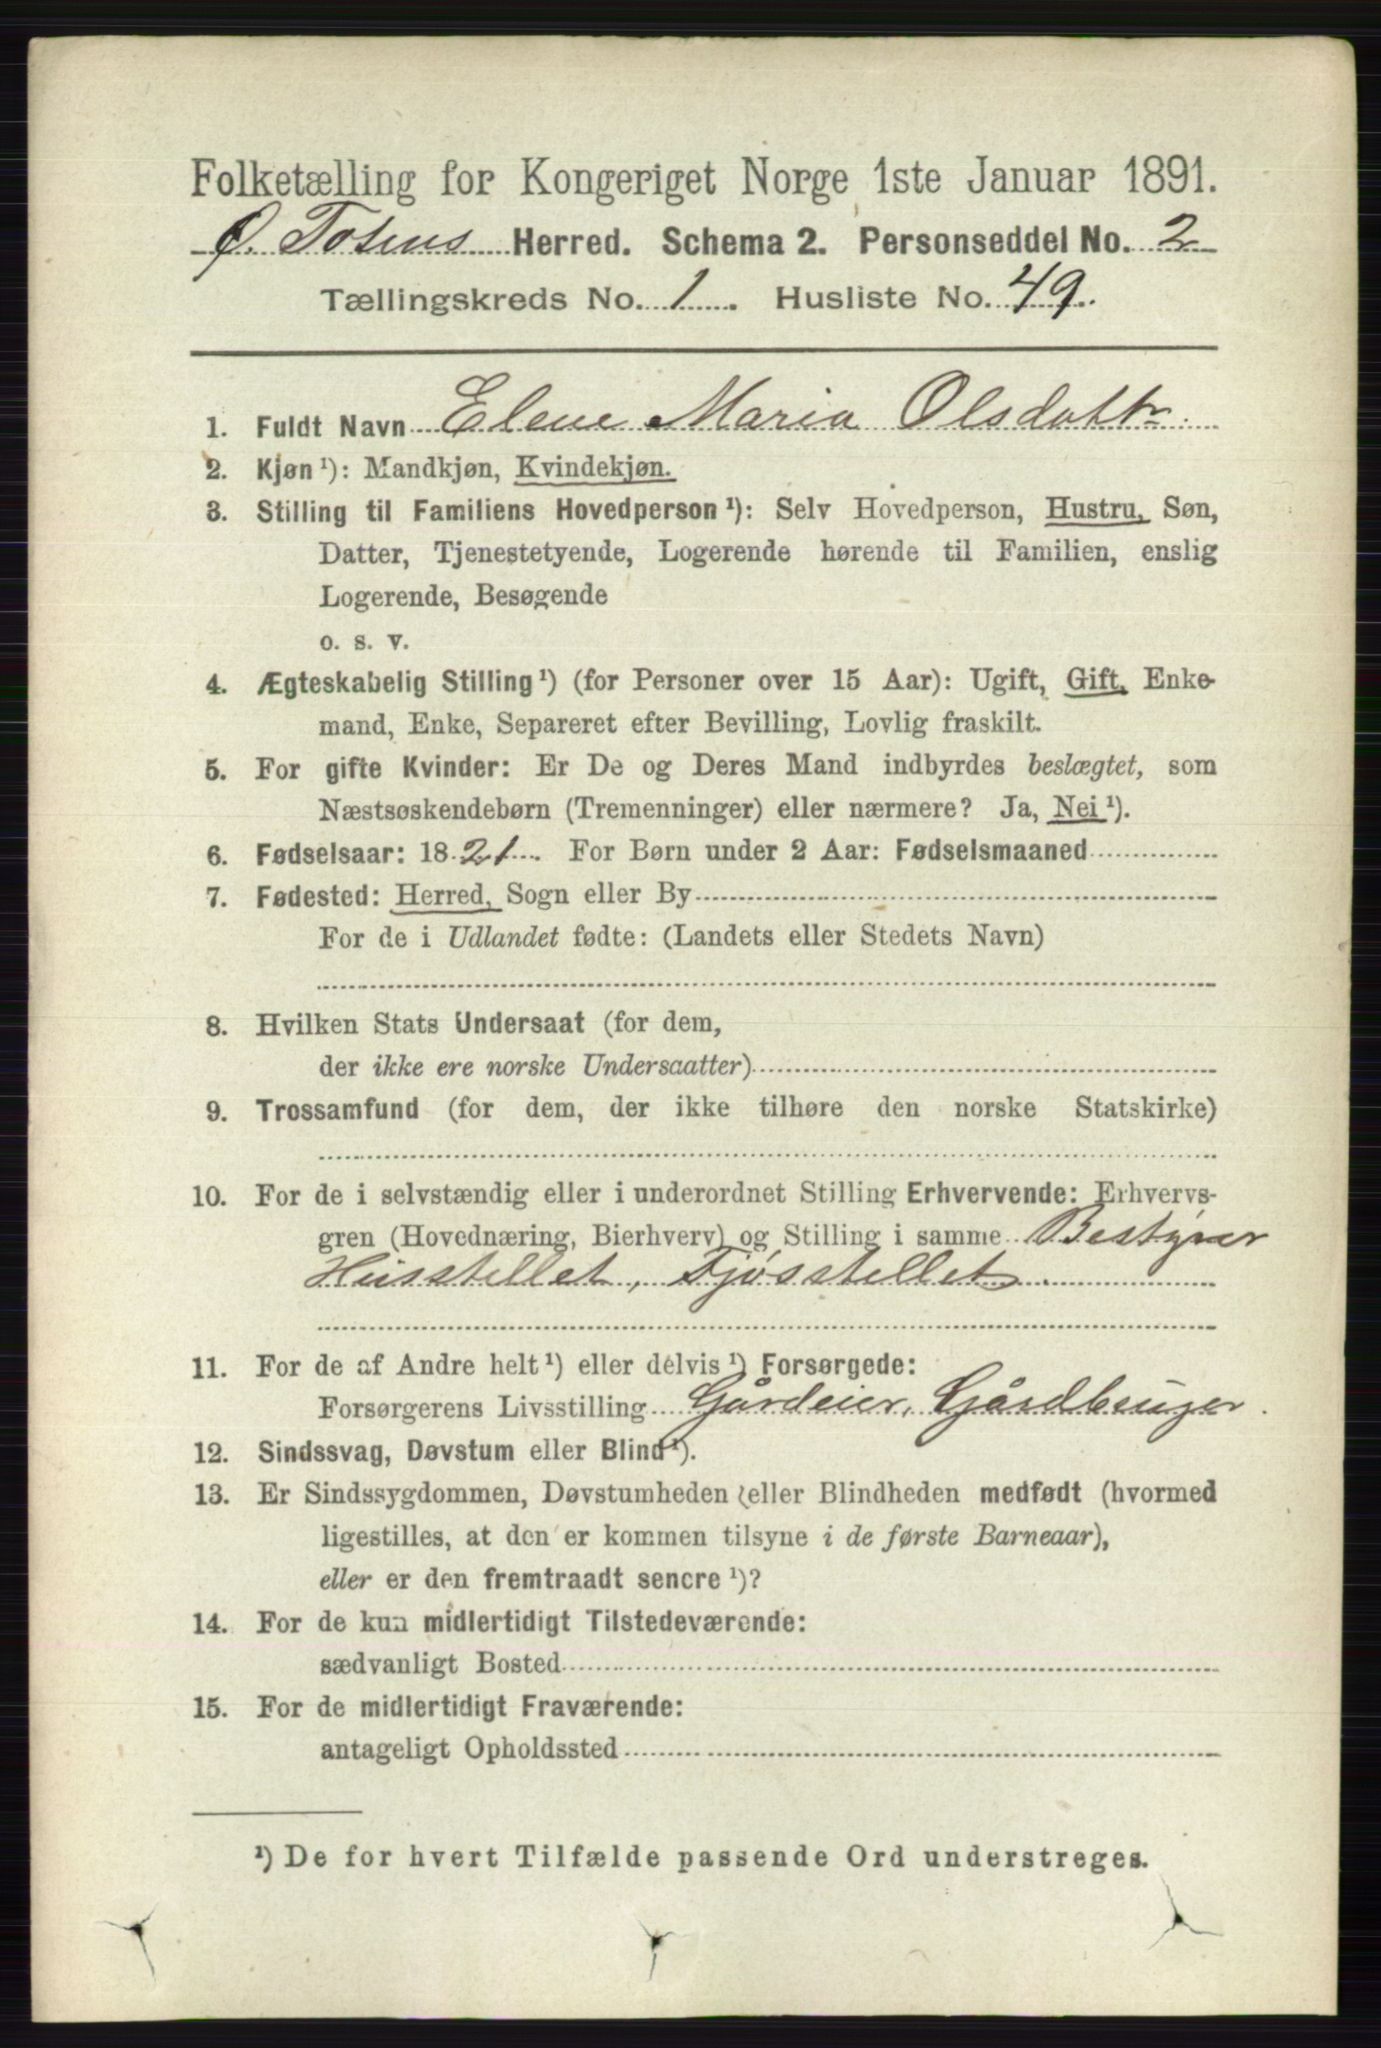 Folketælling for Kongeriget Norge 1ste Januar 1891.
Ø. Totens Herred. Schema 2. Personseddel No. 2
Tællingskreds No. 1. Husliste No. 49.
1. Fuldt Navn Elene Maria Olsdattr.
2. Kjøn ¹): Mandkjøn, Kvindekjøn.
3. Stilling til Familiens Hovedperson ¹): Selv Hovedperson, Hustru, Søn,
Datter, Tjenestetyende, Logerende hørende til Familien, enslig
Logerende, Besøgende
o. s. v.
4. Ægteskabelig Stilling ¹) (for Personer over 15 Aar): Ugift, Gift, Enke-
mand, Enke, Separeret efter Bevilling, Lovlig fraskilt.
5. For gifte Kvinder: Er De og Deres Mand indbyrdes beslægtet, som
Næstsøskendebørn (Tremenninger) eller nærmere? Ja, Nei ¹).
6. Fødselsaar: 1821. For Børn under 2 Aar: Fødselsmaaned
7. Fødested: Herred, Sogn eller By
For de i Udlandet fødte: (Landets eller Stedets Navn)
8. Hvilken Stats Undersaat (for dem,
der ikke ere norske Undersaatter)
9. Trossamfund (for dem, der ikke tilhøre den norske Statskirke)
10. For de i selvstændig eller i underordnet Stilling Erhvervende: Erhvervs-
gren (Hovednæring, Bierhverv) og Stilling i samme Bestyrer
Husstellet, Fjøsstellet.
11. For de af Andre helt ¹) eller delvis ¹) Forsørgede:
Forsørgerens Livsstilling Gårdeier, Gårdbruger.
12. Sindssvag, Døvstum eller Blind ¹).
13. Er Sindssygdommen, Døvstumheden eller Blindheden medfødt (hvormed
ligestilles, at den er kommen tilsyne i de første Barneaar),
eller er den fremtraadt senere ¹)?
14. For de kun midlertidigt Tilstedeværende:
sædvanligt Bosted
15. For de midlertidigt Fraværende:
antageligt Opholdssted
¹) De for hvert Tilfælde passende Ord understreges.